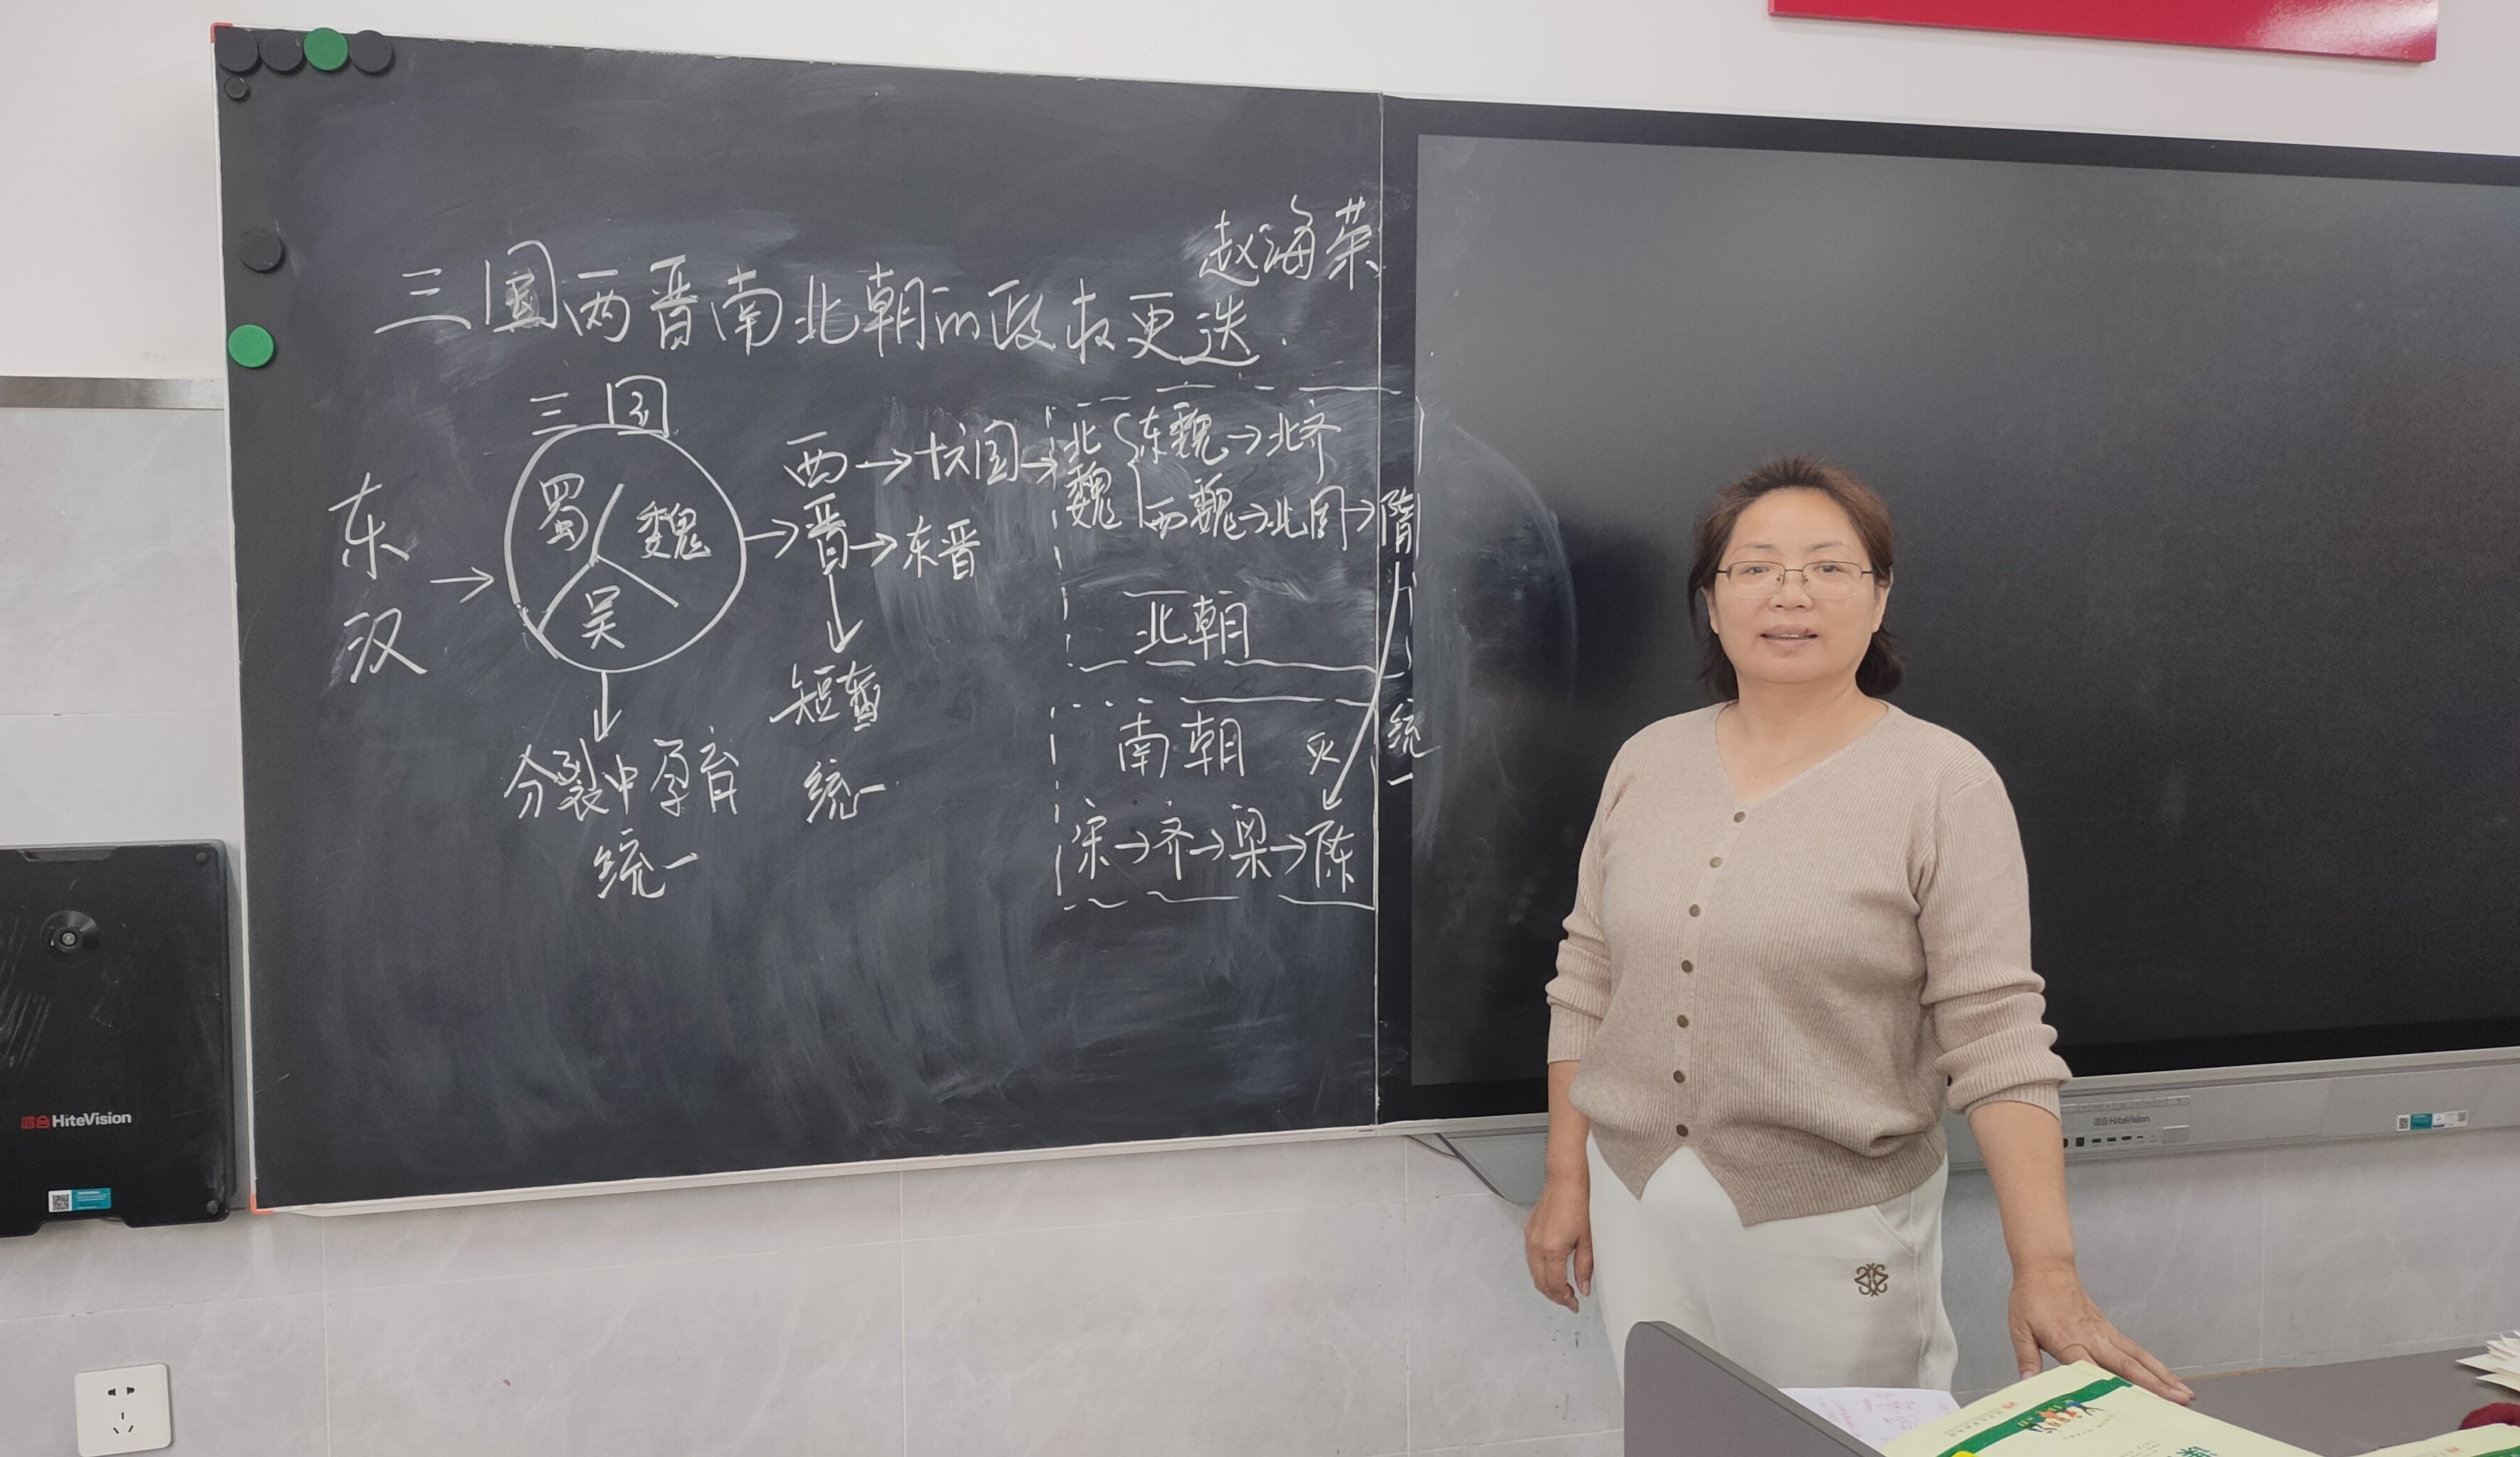 赵海荣
三国两晋南北朝的政权更迭.
三国
蜀 魏
吴
东汉→
→西晋→十六国→
→东晋
北魏{东魏→北齐
西魏→北周→隋
北朝
分裂中孕育
统一
短暂
统一
南朝 灭
统一
宋→齐→梁→陈
HiteVision
HiteVision